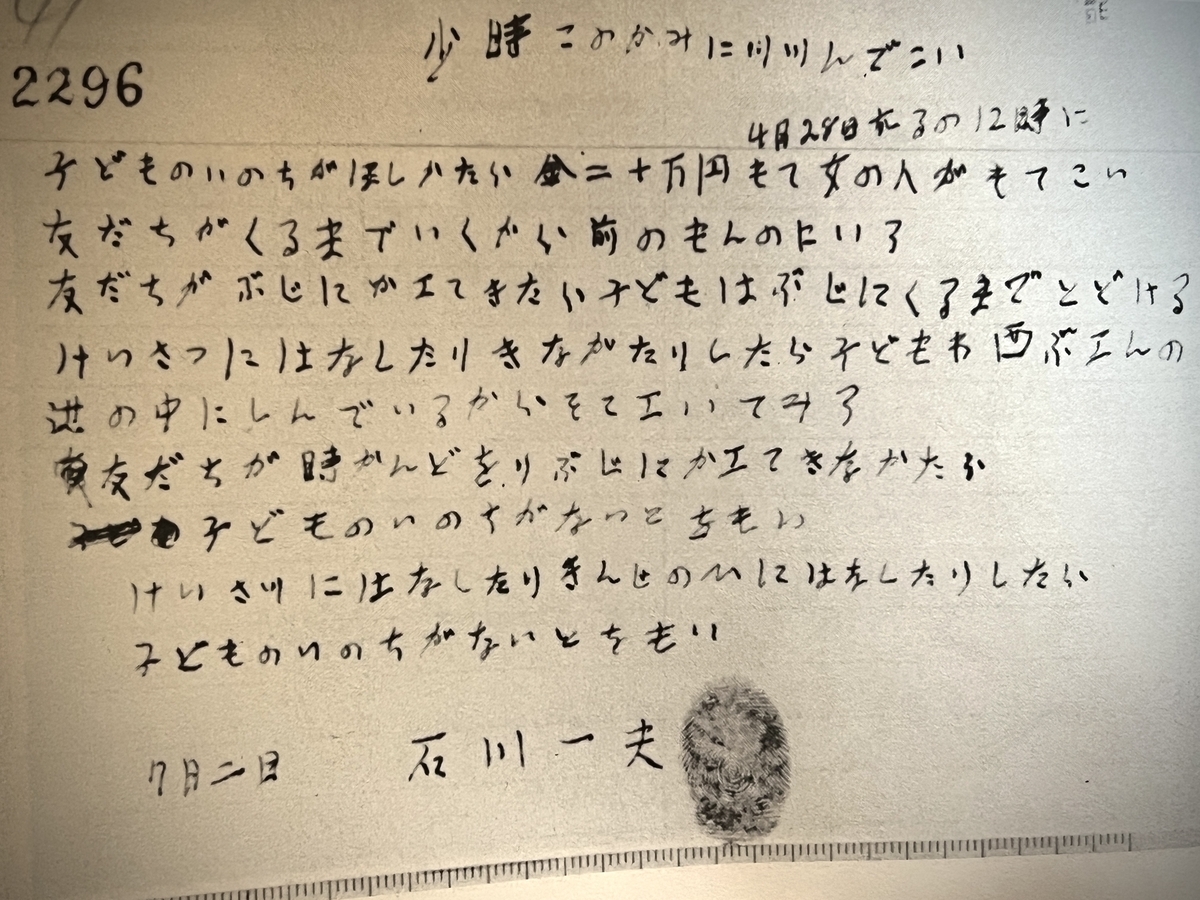 2296
少時このかみに川川んでこい
4月28日 るの12時に
子どものいのちがほしかたら金二十万円もて女の人がもてこい
友だちがくるまでいくから前のもんのにいろ
友だちがぶじにかエてきたら子どもはぶじにくるまでとどける
けいさつにはなしたりきながたりしたら子どもわ西ぶエんの
の中にしんでいるからそこエいてみろ
友だちが時かんどをりぶじにかエてきなかたら
子どものいのちがないとをもい
けいさ川にはなしたりきんじの人にはなしたりしたら
子どものいのちがないとをもい
7月二日 石川一夫